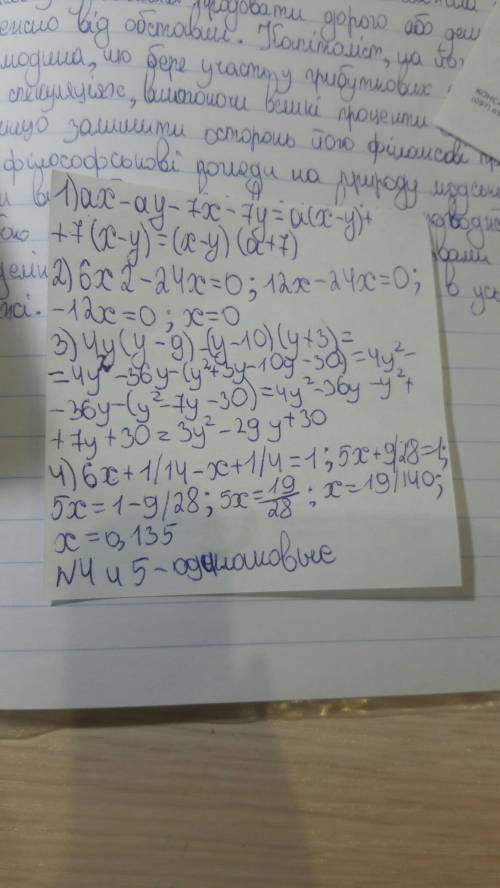 продовати дорого або
від обставин. Капіталіст, що
бере участь у прибуткових
спекуляціях, вимагаючи великі проценти
залишити осторонь його фінансові
філософські погляди на природу
1) ax-ay-7x-7y=a(x-y)+
+7(x-y)=(x-y)(a+7)
2) 6x2-24x=0; 12x-24x=0;
-12x=0; x=0
3) 4y(y-9)-(y-10)(y+3)=
=4y²-36y-(y²+3y-10y-30)=4y²-
-36y-(y²-7y-30)=4y²-36y-y²+
+7y+30=3y²-29y+30
4) 6x+1/14-x+1/4=1; 5x+9/28=1;
5x=1-9/28; 5x=19/28; x=19/140;
x=0,135
N4 и 5-одинаковые